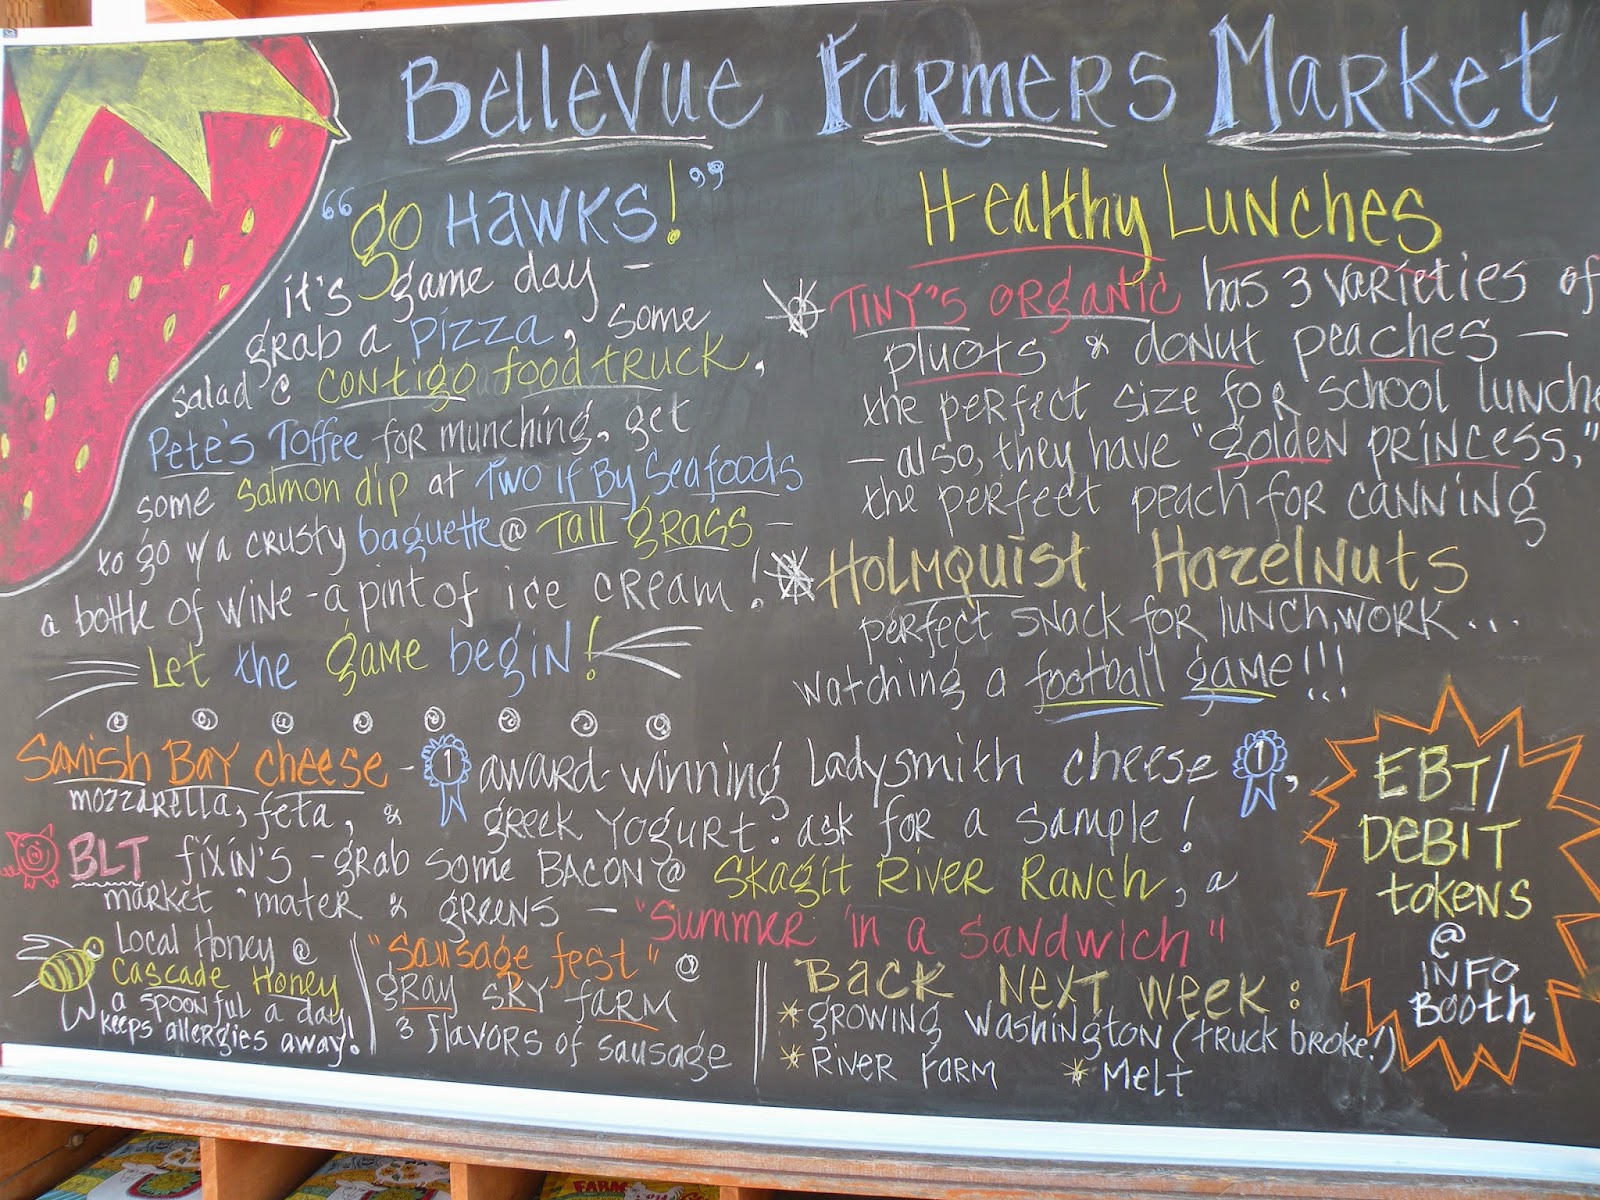 Bellevue Farmers Market
"go HAWKS!"
it's game day -
grab a pizza, some
salad @ contigo food truck,
Pete's Toffee for munching, get
some salmon dip at Two if By Seafoods
to go w/a crusty baguette @ Tall grass -
a bottle of wine - a pint of ice cream!
Let the game begin!
Healthy Lunches
TINY'S ORGANIC has 3 varieties of
pluots & donut peaches -
the perfect size for school lunche
- also, they have "golden princess,"
the perfect peach for canning
Holmquist Hazelnuts
perfect snack for lunch, work...
watching a football game!!!
Samish Bay cheese - 1 award-winning Ladysmith cheese 1,
mozzarella, feta, & greek yogurt. ask for a sample!
BLT fixin's - grab some BACON @ Skagit River Ranch, a
market 'mater & greens - "Summer in a sandwich"
Local Honey @
Cascade Honey
a spoonful a day
keeps allergies away!
"Sausage fest" @
gray sky farm
3 flavors of sausage
Back next week:
* growing Washington (truck broke!)
* River Farm * Melt
EBT/
DEBIT
tokens
@
INFO
Booth
FARM